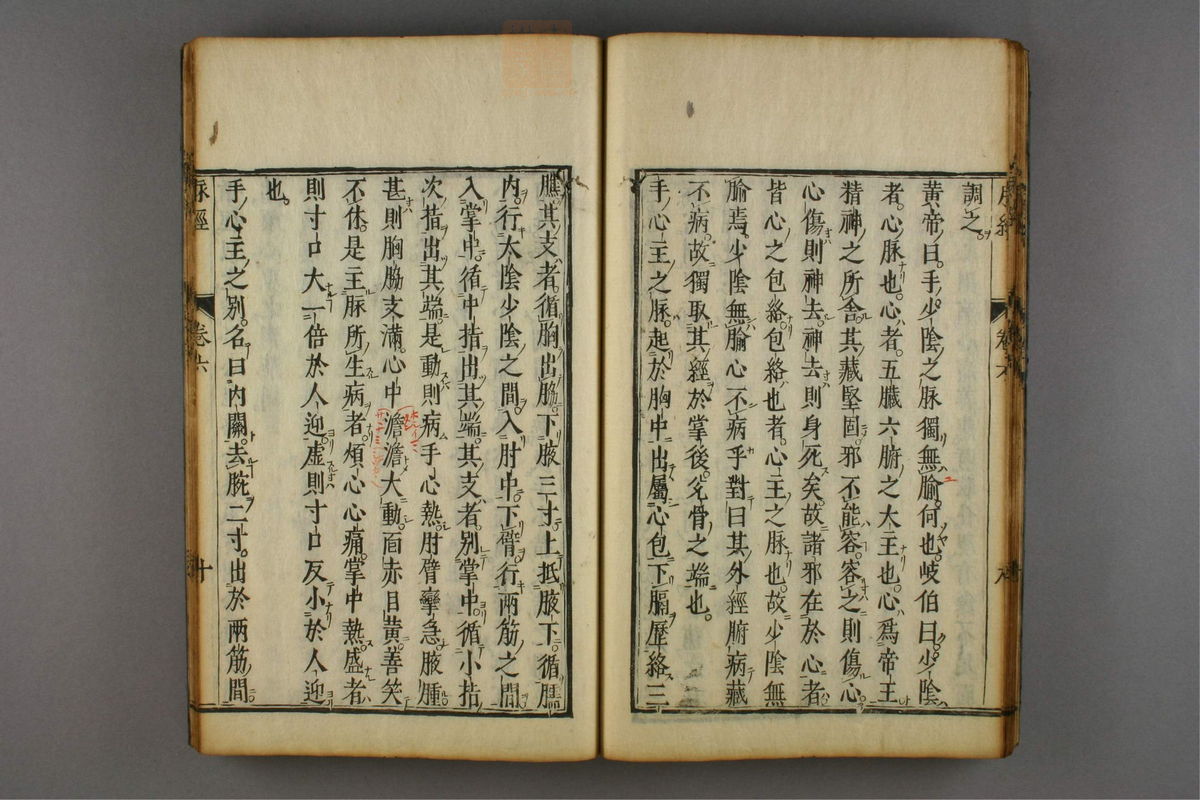 調之。
黃帝曰。手少陰之脉獨無腧。何也。岐伯曰。少陰
者。心脉也。心者。五臟六腑之大主也。心爲帝王
精神之所舍。其藏堅固。邪不能容。容之則傷心。
心傷則神去。神去則身死矣。故諸邪在於心者
皆心之包絡。包絡也者。心主之脉也。故少陰無
腧焉。少陰無腧心不病乎。對曰其外經腑病藏
不病。故獨取其經於掌後。兌骨之端也。
手心主之脉。起於胸中。出屬心包下膈。歷絡三
膲其支者。循胸出脇。下腋三寸。上抵腋下。循臑
內。行太陰少陰之間。入肘中。下臂。行兩筋之間
入掌中。循中指出其端。其支者。別掌中。循小指
次指出其端。是動則病手心熱。肘臂攣急。腋腫
甚則胸脇支滿。心中澹澹大動。面赤目黃。善笑
不休。是主脉所生病者。煩心心痛。掌中熱。盛者
則寸口大一倍於人迎。虛則寸口反小於人迎
也。
手心主之別。名曰內關。去腕二寸。出於兩筋間
脉經 卷六 十